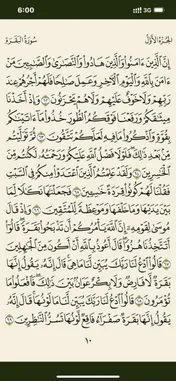 6:00
3G
الجزء الأول
سورة البقرة
إِنَّ ٱلَّذِينَ ءَامَنُوا۟ وَٱلَّذِينَ هَادُوا۟ وَٱلنَّصَٰرَىٰ وَٱلصَّٰبِـِٔينَ مَنْ
ءَامَنَ بِٱللَّهِ وَٱلْيَوْمِ ٱلْءَاخِرِ وَعَمِلَ صَٰلِحًا فَلَهُمْ أَجْرُهُمْ عِندَ
رَبِّهِمْ وَلَا خَوْفٌ عَلَيْهِمْ وَلَا هُمْ يَحْزَنُونَ ٦٢ وَإِذْ أَخَذْنَا
مِيثَٰقَكُمْ وَرَفَعْنَا فَوْقَكُمُ ٱلطُّورَ خُذُوا۟ مَآ ءَاتَيْنَٰكُم
بِقُوَّةٍ وَٱذْكُرُوا۟ مَا فِيهِ لَعَلَّكُمْ تَتَّقُونَ ٦٣ ثُمَّ تَوَلَّيْتُم
مِّنۢ بَعْدِ ذَٰلِكَ فَلَوْلَا فَضْلُ ٱللَّهِ عَلَيْكُمْ وَرَحْمَتُهُۥ لَكُنتُم مِّنَ
ٱلْخَٰسِرِينَ ٦٤ وَلَقَدْ عَلِمْتُمُ ٱلَّذِينَ ٱعْتَدَوْا۟ مِنكُمْ فِى ٱلسَّبْتِ
فَقُلْنَا لَهُمْ كُونُوا۟ قِرَدَةً خَٰسِـِٔينَ ٦٥ فَجَعَلْنَٰهَا نَكَٰلًا لِّمَا
بَيْنَ يَدَيْهَا وَمَا خَلْفَهَا وَمَوْعِظَةً لِّلْمُتَّقِينَ ٦٦ وَإِذْ قَالَ
مُوسَىٰ لِقَوْمِهِۦٓ إِنَّ ٱللَّهَ يَأْمُرُكُمْ أَن تَذْبَحُوا۟ بَقَرَةً قَالُوٓا۟
أَتَتَّخِذُنَا هُزُوًا قَالَ أَعُوذُ بِٱللَّهِ أَنْ أَكُونَ مِنَ ٱلْجَٰهِلِينَ
٦٧ قَالُوا۟ ٱدْعُ لَنَا رَبَّكَ يُبَيِّن لَّنَا مَا هِىَ قَالَ إِنَّهُۥ يَقُولُ إِنَّهَا
بَقَرَةٌ لَّا فَارِضٌ وَلَا بِكْرٌ عَوَانٌۢ بَيْنَ ذَٰلِكَ فَٱفْعَلُوا۟ مَا
تُؤْمَرُونَ ٦٨ قَالُوا۟ ٱدْعُ لَنَا رَبَّكَ يُبَيِّن لَّنَا مَا لَوْنُهَا قَالَ إِنَّهُۥ
يَقُولُ إِنَّهَا بَقَرَةٌ صَفْرَآءُ فَاقِعٌ لَّوْنُهَا تَسُرُّ ٱلنَّٰظِرِينَ ٦٩
١٠